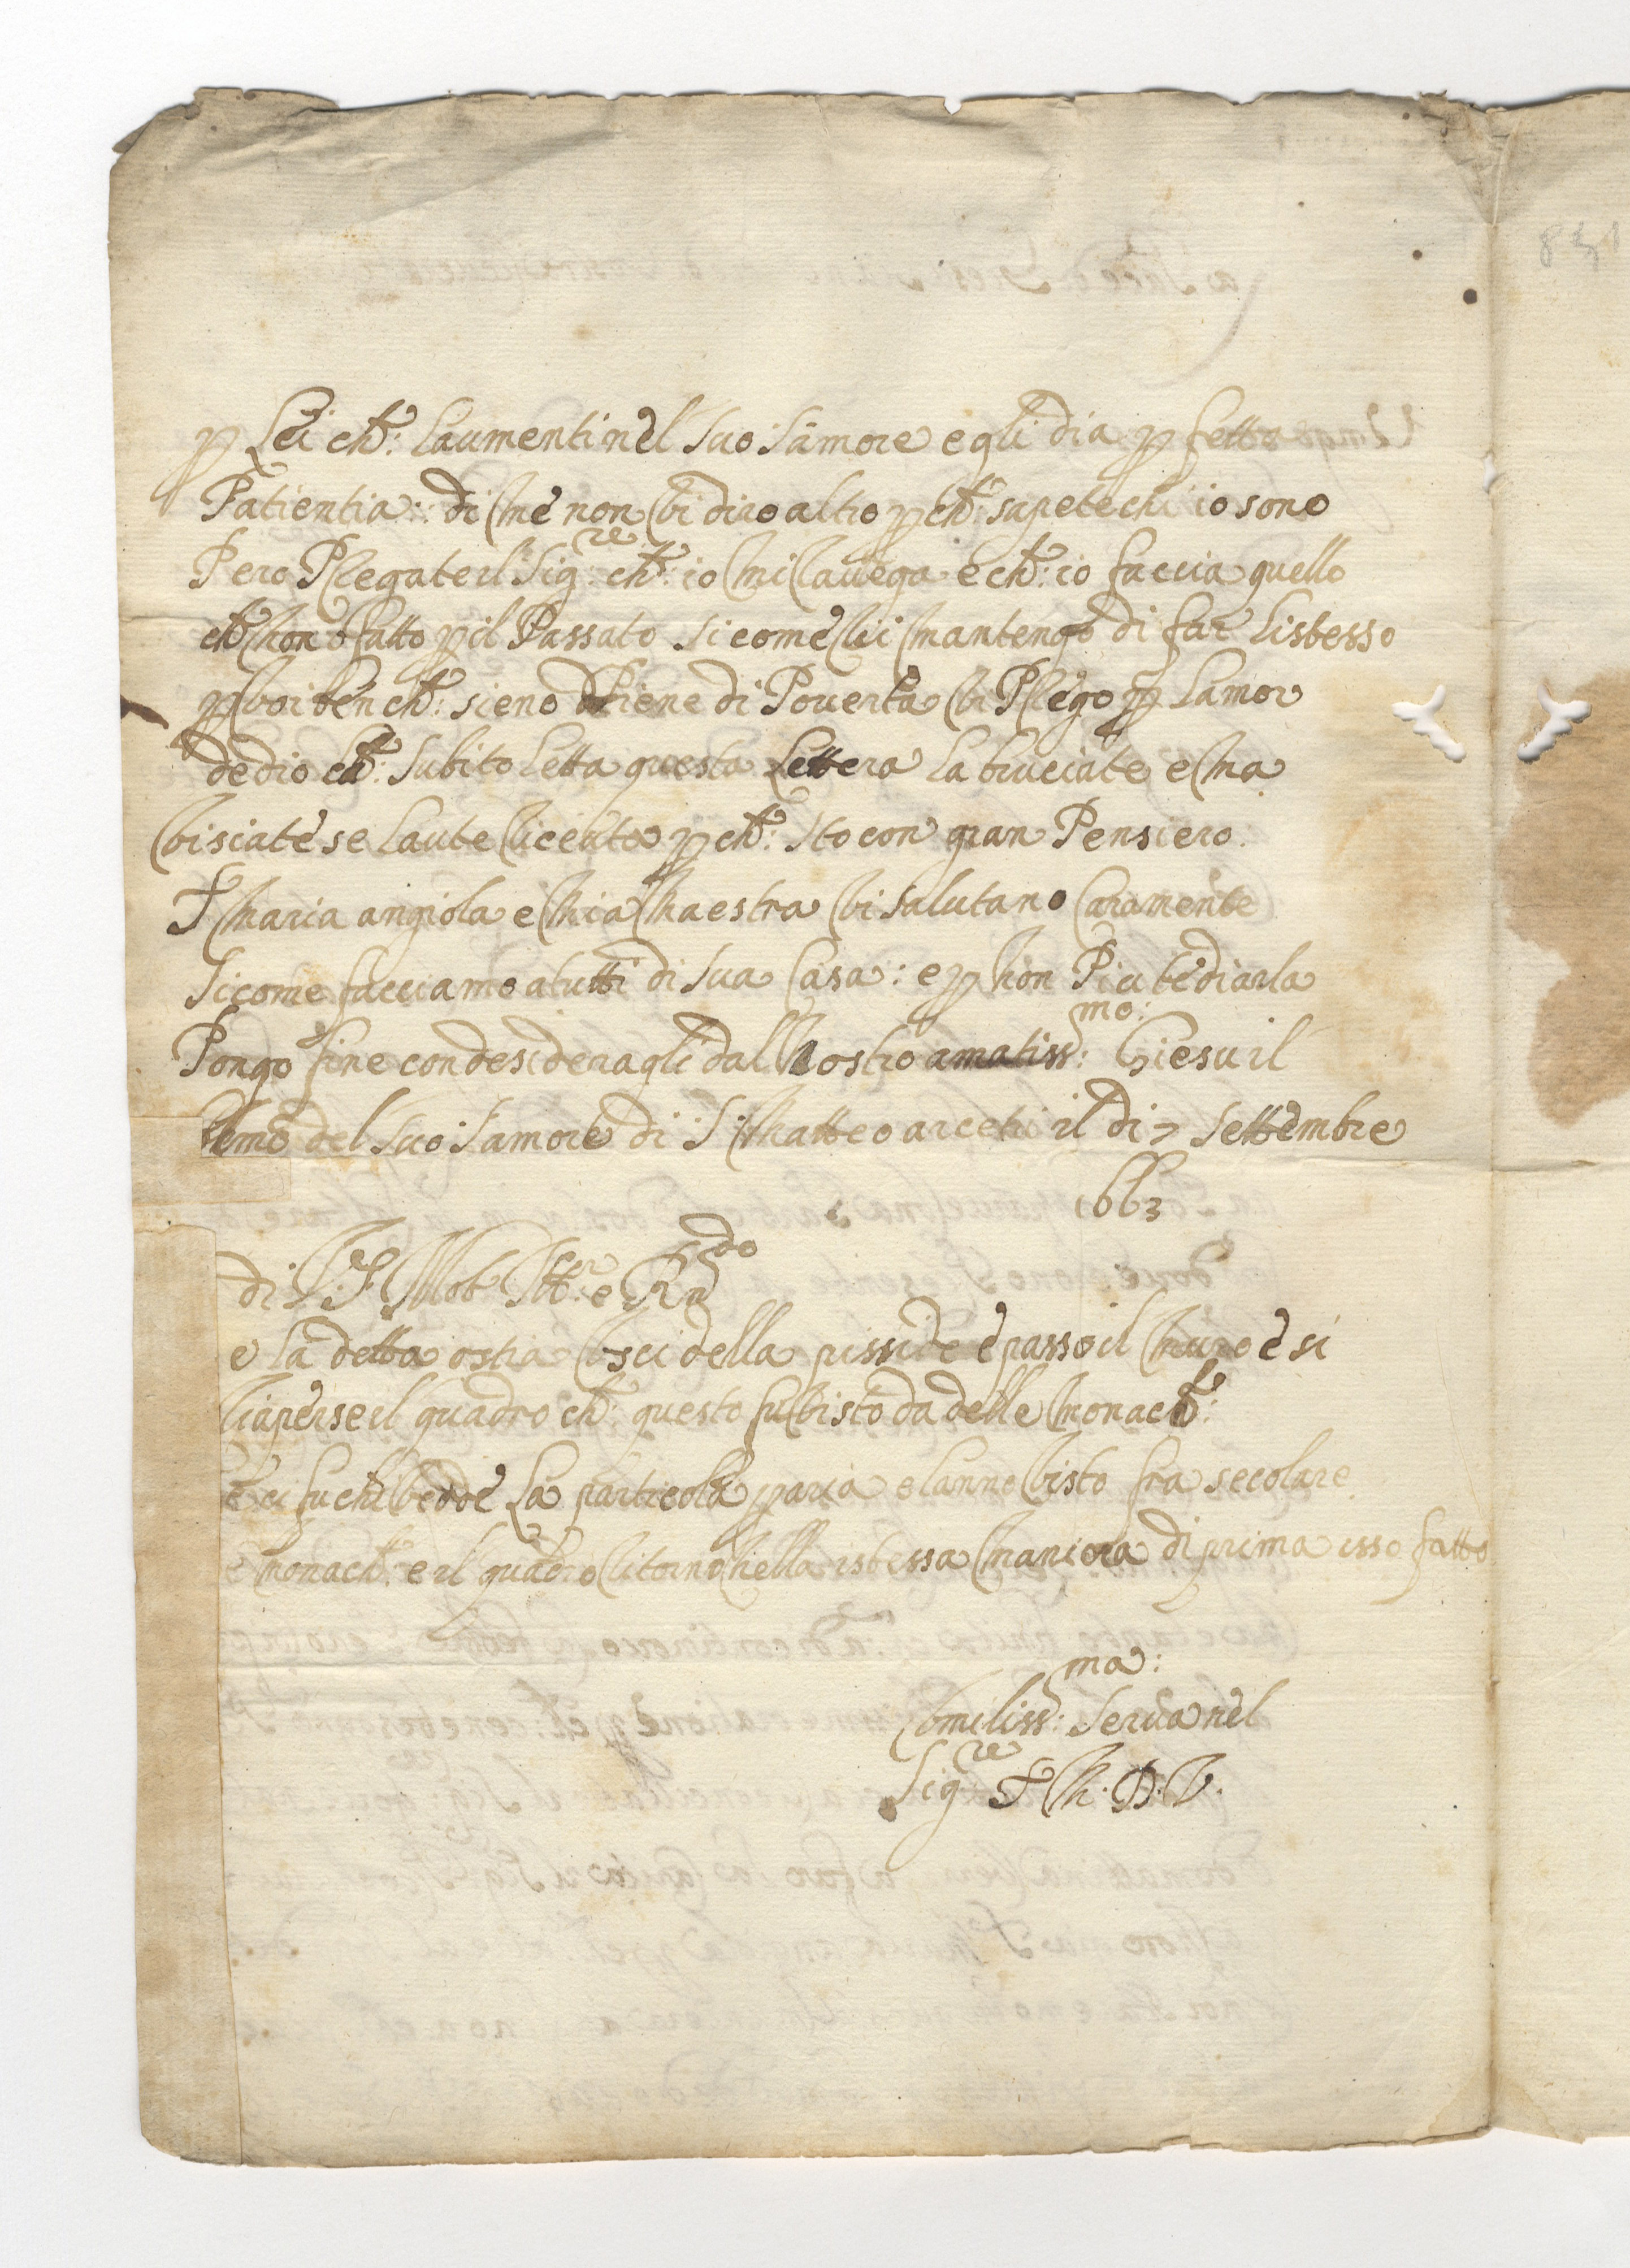 p Lei ch: laumenti nel suo S: amore e gli dia p fetta
Patientia: di me non vi diro altro p ch: sapete chi io sono
Pero Plegate il Sig:re ch: io mi lauega e ch: io faccia quello
ch non o fatto p il Passato si come lii mantengo di far listesso
p voi ben ch: sieno Piene di Pouerta vi Plego p lamor
dedio ch: subito letta questa Lettera la bruciate e ma
visiate se laute liceuto p ch: sto con gran Pensiero.
S maria angiola e mia maestra vi salutano caramente
si come facciamo a tutti di sua casa: e p non Piu tediarla
Pongo fine con desideragli dal nostro amatiss:mo: Giesu il
del suo S: amore di S: Matteo arcetri il di 7 settembre
1663
di V. S. Mol Ill:re e Rndo
e la detta ostia vsci della pisside e passo il muro e si
liaperse il quadro ch: questo fu visto da delle monach:
e ci fu chi vedde la particola p aria e lanno visto fra secolare
e monach: e il quadro litorno nella istessa maniera di prima isso fatto
vmiliss:ma: Serua nel
Sig:re S M. D. V.
831